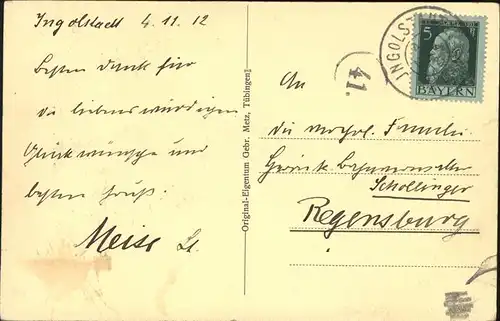 Ingolstadt 4.11.12
Besten Dank für
die liebenswürdigen
Glückwünsche und
besten Gruß.
Meiser Lt.
Original-Eigentum Gebr. Metz, Tübingen
41.
INGOLST
5
BAYERN
An
die Familie
Schollinger
Regensburg